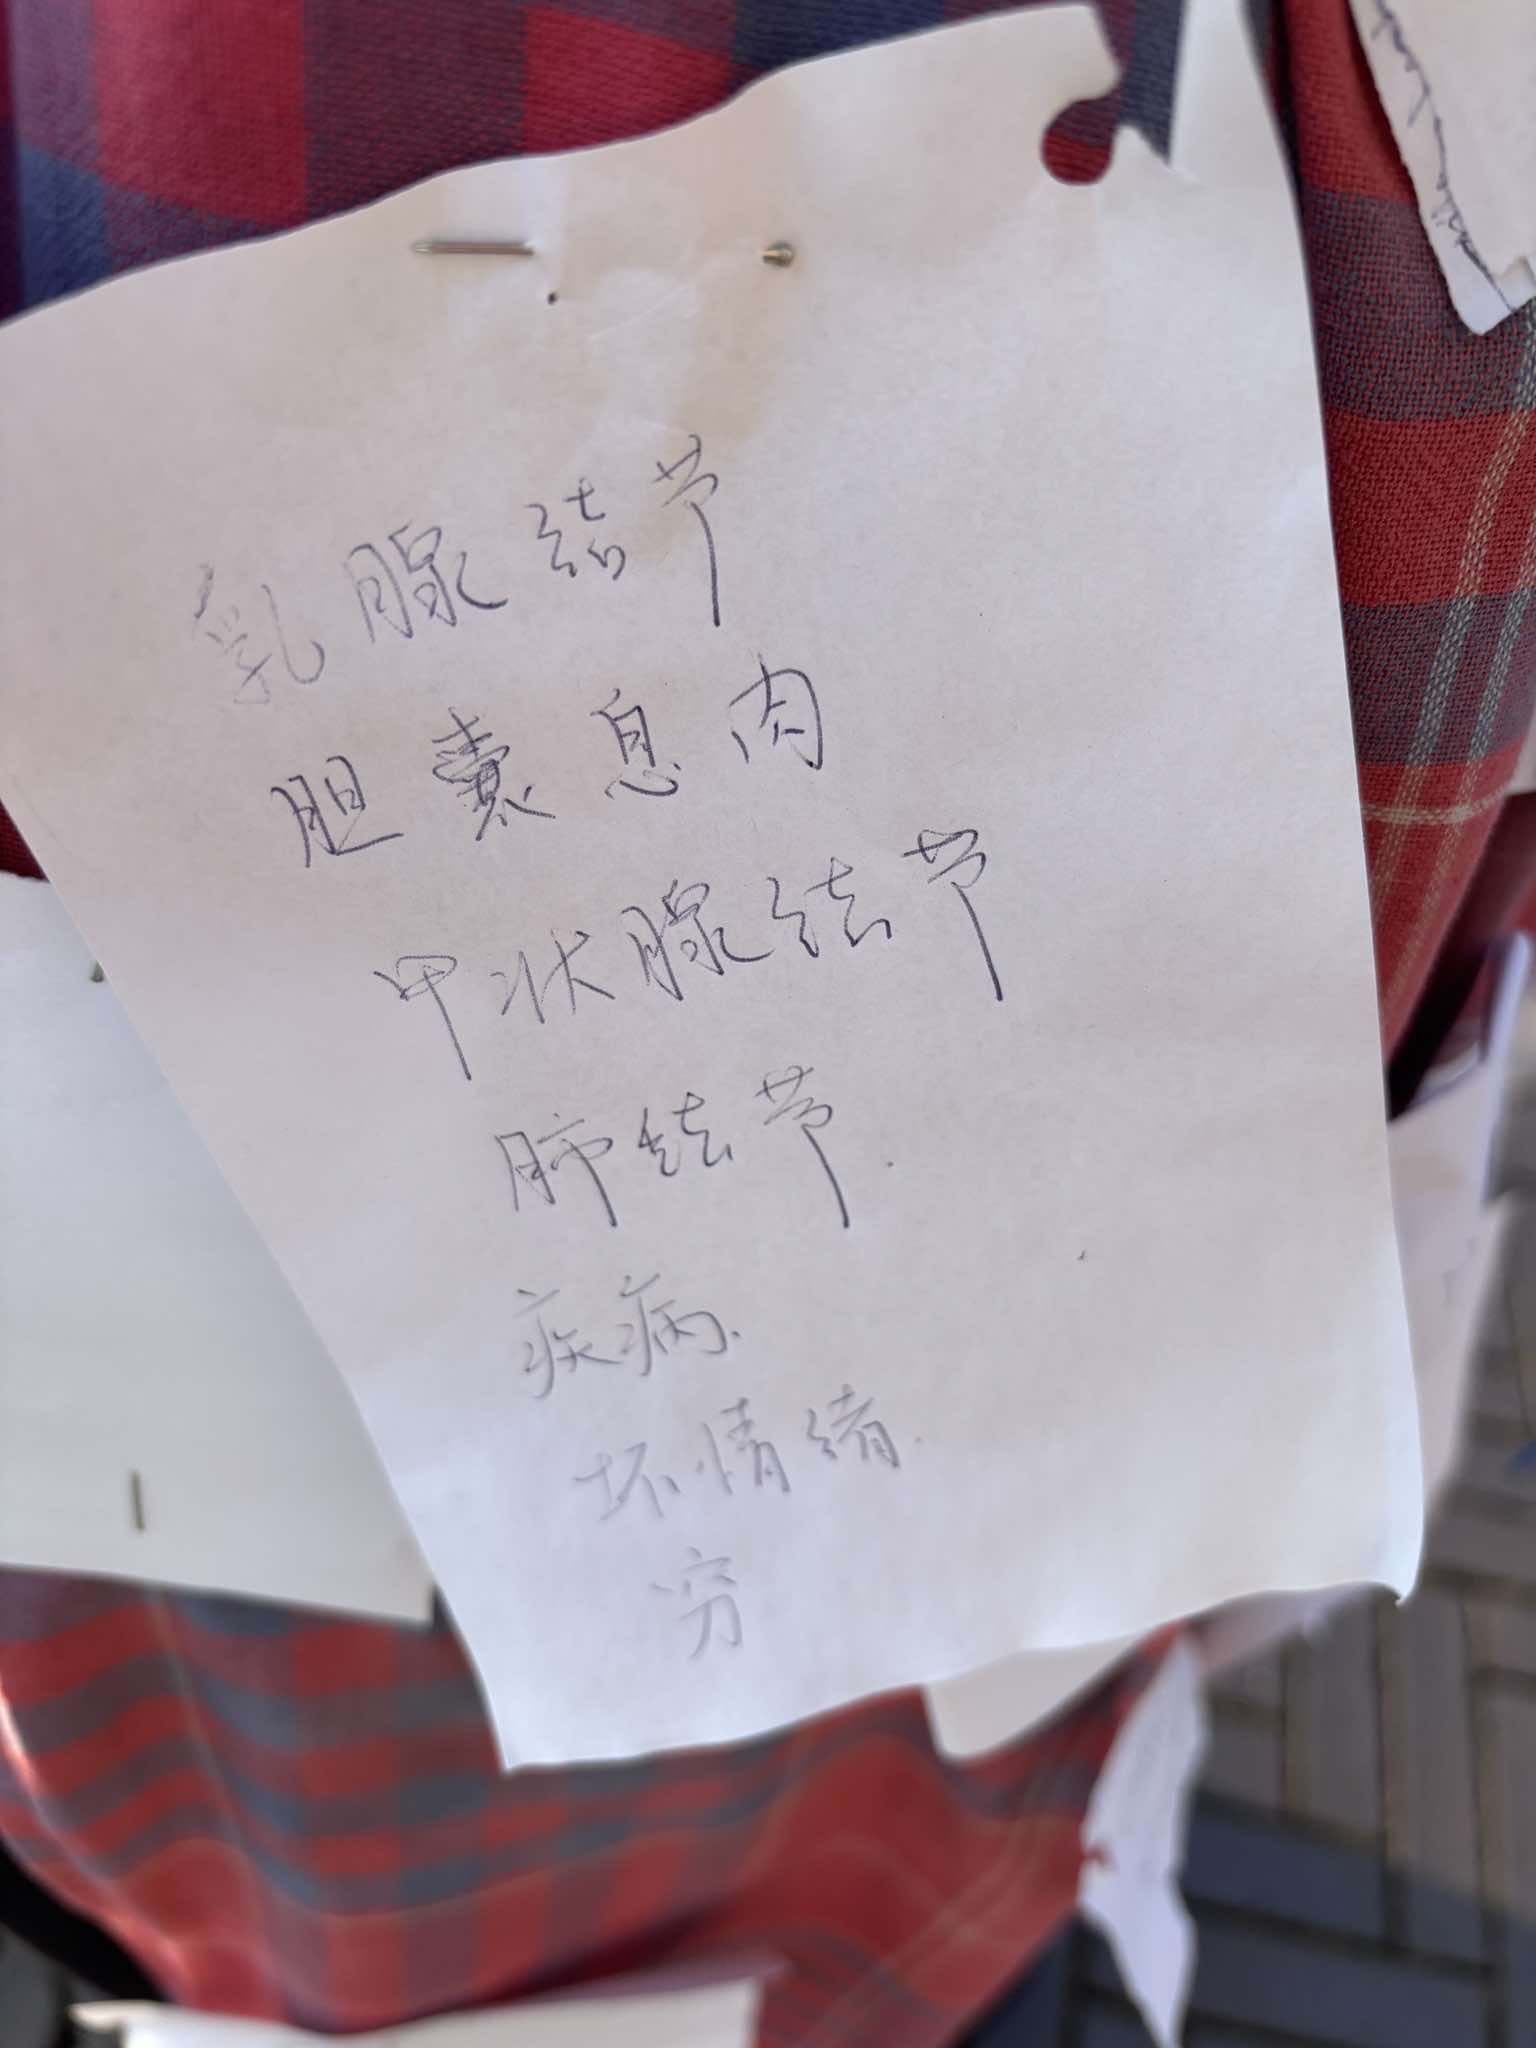 乳腺结节
胆囊息肉
甲状腺结节
肺结节.
疾病.
坏情绪.
穷